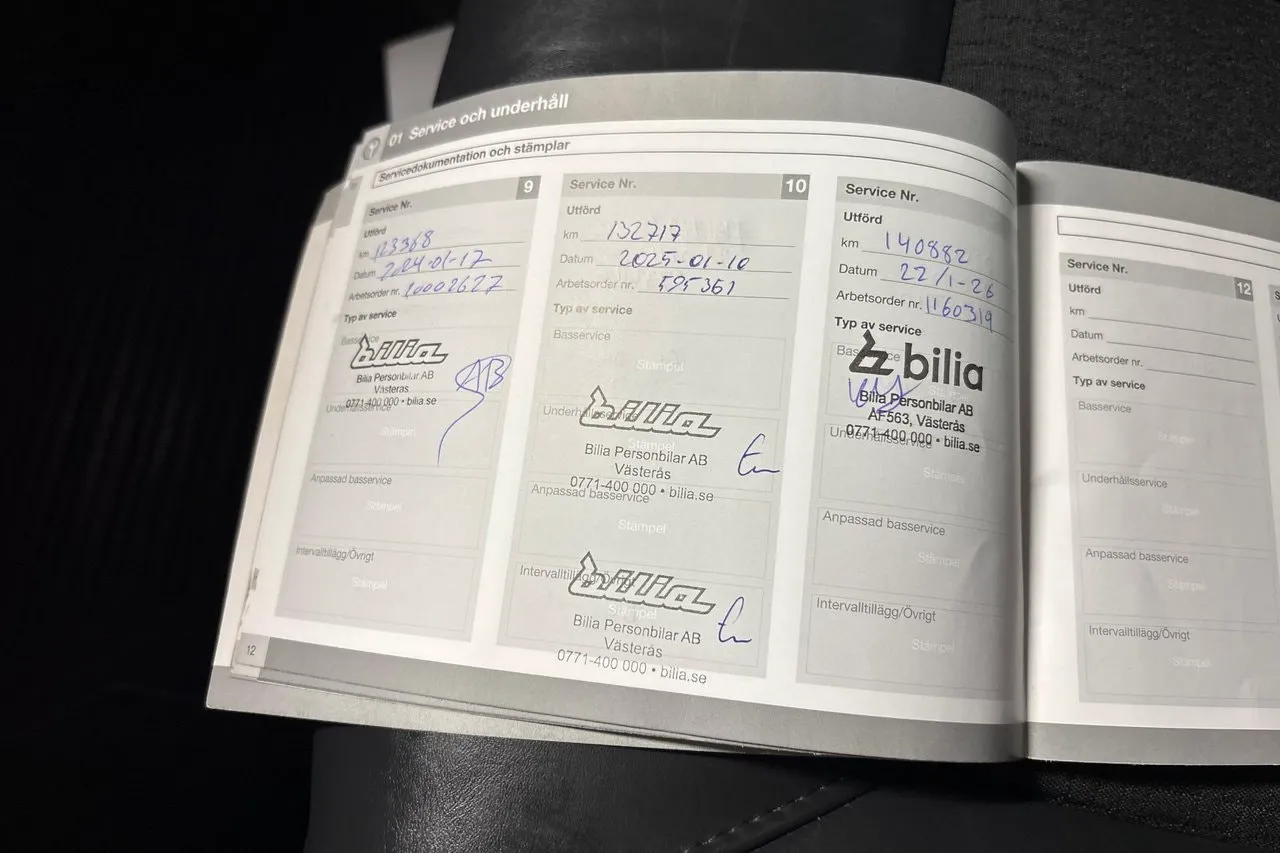 01 Service och underhåll
Servicedokumentation och stämplar
Service Nr. 9
Utförd
km 123368
Datum 2024-01-12
Arbetsorder nr. 10002627
Typ av service
Basservice
bilia
Bilia Personbilar AB
Västerås
0771-400 000 • bilia.se
AB
Underhållsservice
Stämpel
Anpassad basservice
Stämpel
Intervalltillägg/Övrigt
Stämpel
12
Service Nr. 10
Utförd
km 132717
Datum 2025-01-10
Arbetsorder nr. 595361
Typ av service
Basservice
Stämpel
Underhållsservice
bilia
Stämpel
Bilia Personbilar AB
Västerås
0771-400 000 • bilia.se
Anpassad basservice
Stämpel
Intervalltillägg/Övrigt
bilia
Stämpel
Bilia Personbilar AB
Västerås
0771-400 000 • bilia.se
Service Nr.
Utförd
km 140882
Datum 22/1-26
Arbetsorder nr. 1160319
Typ av service
Basservice
bilia
Bilia Personbilar AB
AF563, Västerås
0771-400 000 • bilia.se
Underhållsservice
Stämpel
Anpassad basservice
Stämpel
Intervalltillägg/Övrigt
Stämpel
Service Nr. 12
Utförd
km
Datum
Arbetsorder nr.
Typ av service
Basservice
Stämpel
Underhållsservice
Stämpel
Anpassad basservice
Stämpel
Intervalltillägg/Övrigt
Stämpel